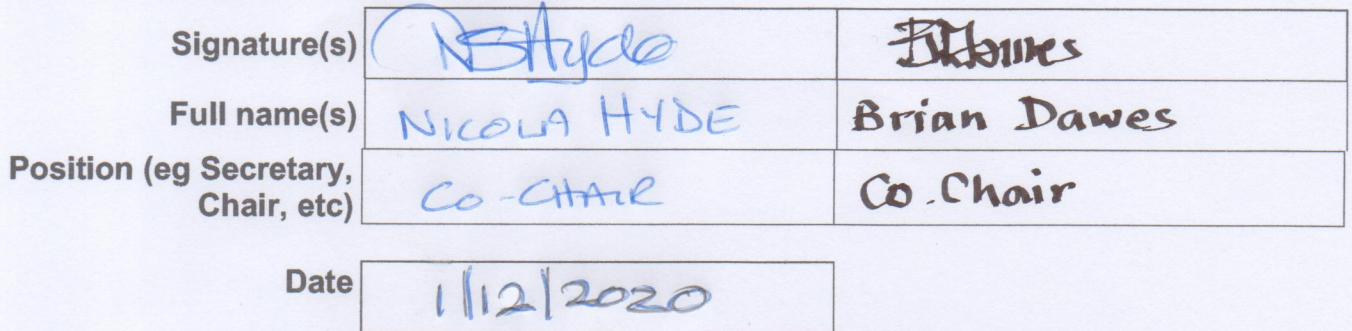 Signature(s) NSHyde BDawes
Full name(s) NICOLA HYDE Brian Dawes
Position (eg Secretary, Chair, etc) CO-CHAIR Co.Chair
Date 1/12/2020